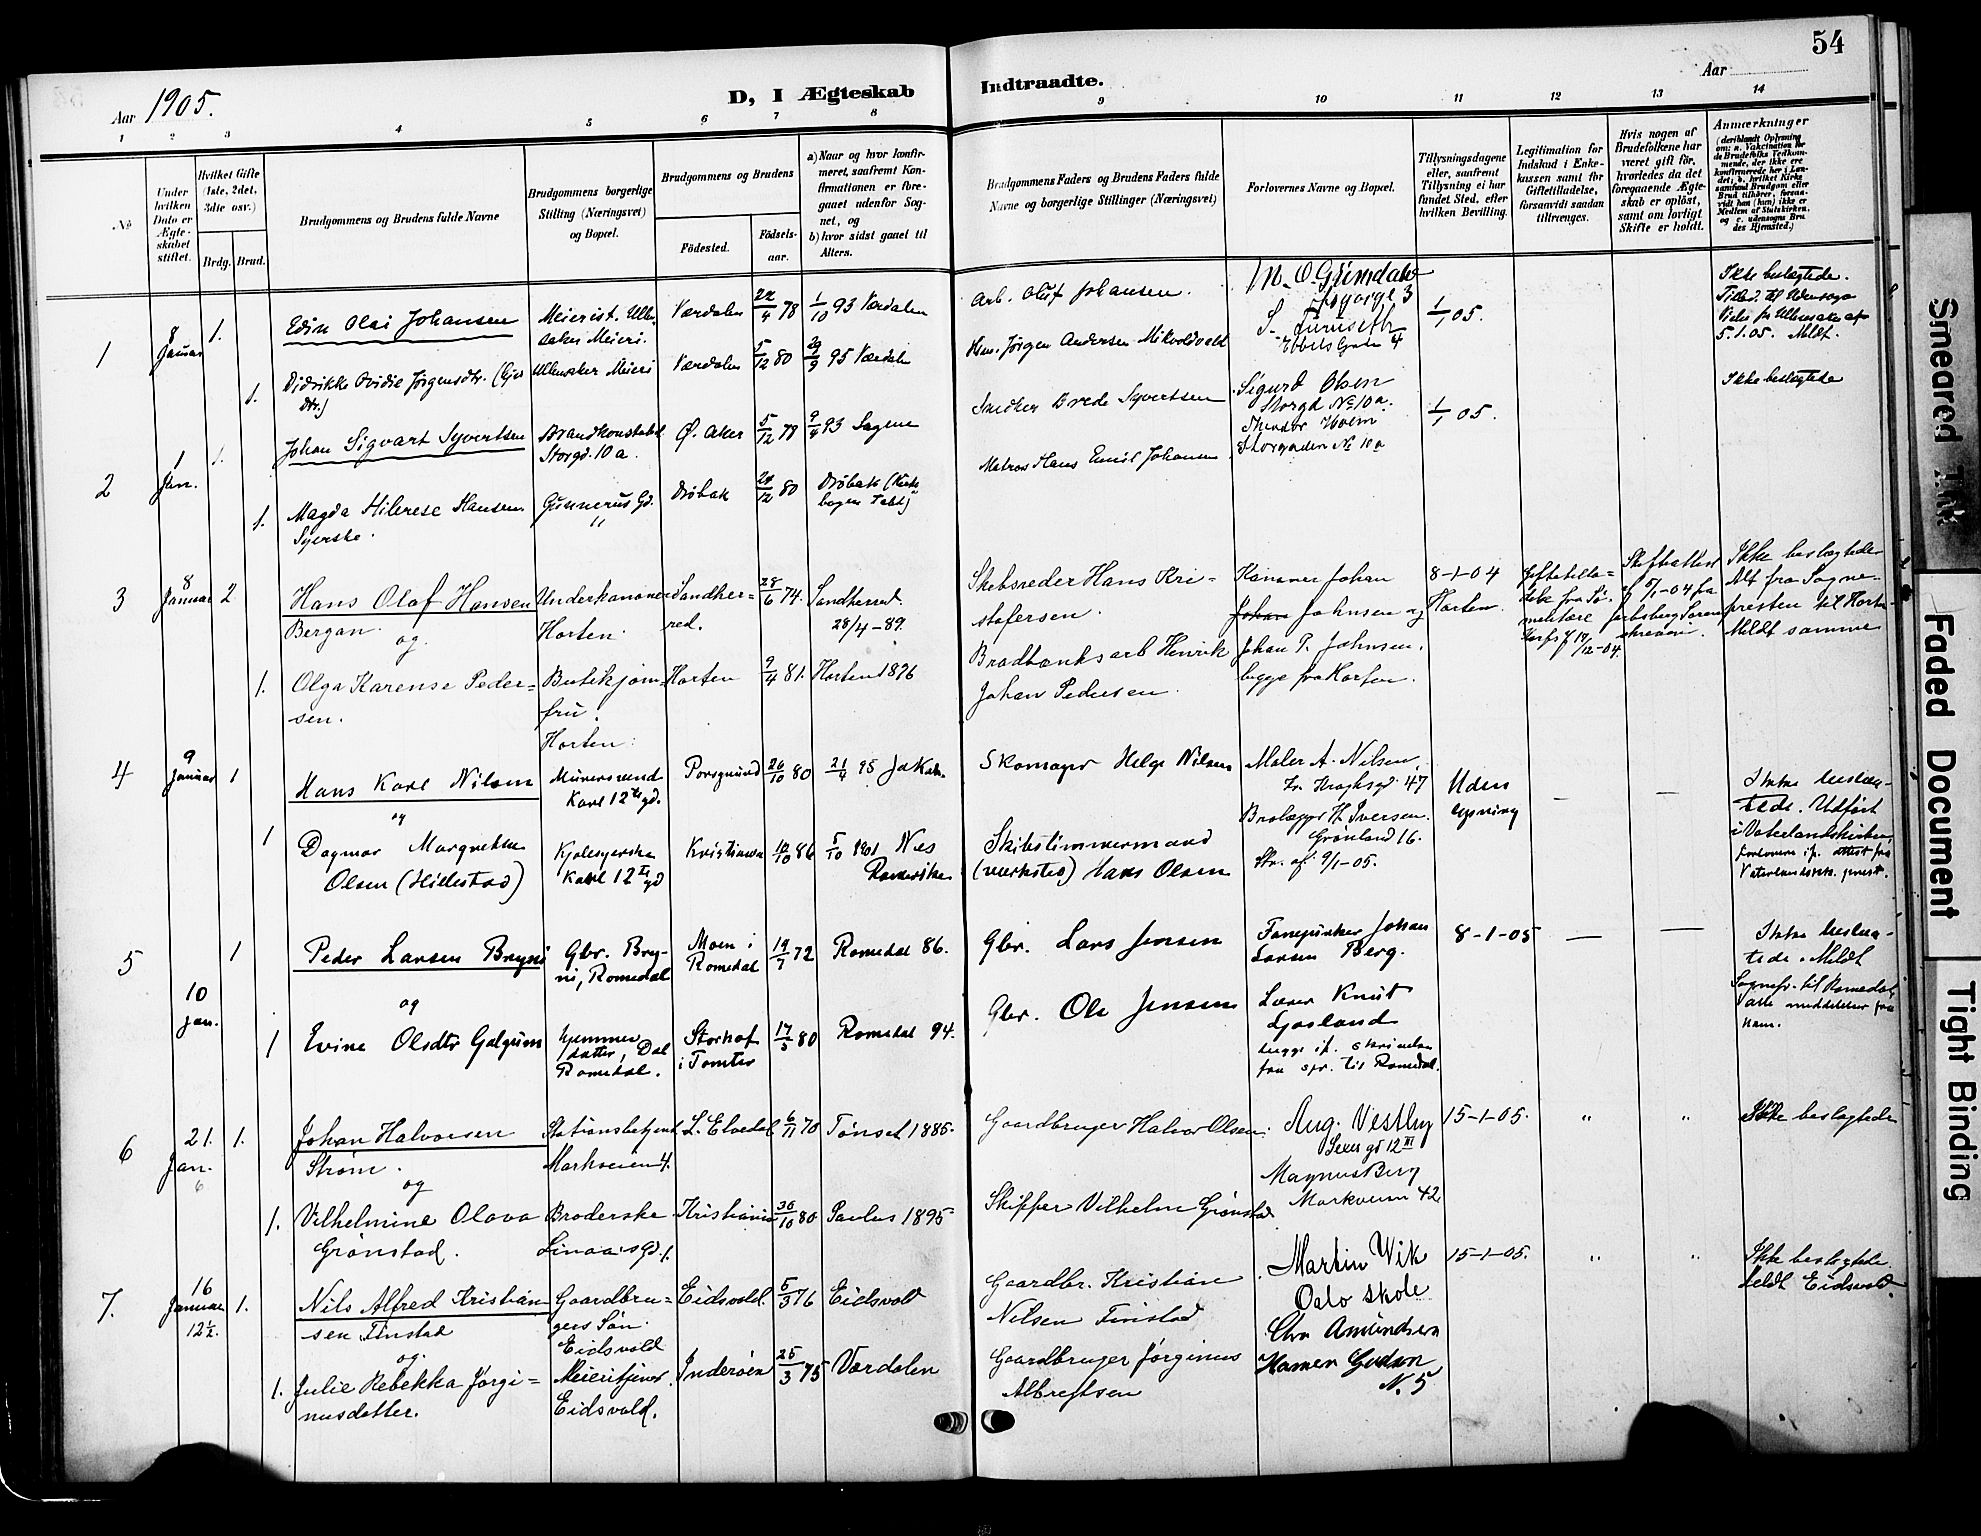 54
Aar 1905.
D, I Ægteskab
Indtraadte.
Aar
1 2 3 4 5 6 7 8
9 10 11 12 13 14
No
Under hvilken Dato er Ægteskabet stiftet.
Hvilket Gifte (1ste, 2det, 3die osv.)
Brdg. Brud.
Brudgommens og Brudens fulde Navne
Brudgommens borgerlige Stilling (Næringsvei) og Bopæl.
Brudgommens og Brudens
Födested.
Födsels-aar.
a) Naar og hvor konfirmeret, saafremt Konfirmationen er foregaaet udenfor Sognet, og
b) hvor sidst gaaet til Alters.
Brudgommens Faders og Brudens Faders fulde Navne og borgerlige Stillinger (Næringsvei)
Forlovernes Navne og Bopæl.
Tillysningsdagene eller, saafremt Tillysning ei har fundet Sted, efter hvilken Bevilling.
Legitimation for Indskud i Enkekassen samt for Giftetilladelse, forsaavidt saadan tiltrænges.
Hvis nogen af Brudefolkene har været gift för, hvorledes da det foregaaende Ægteskab er oplöst, samt om lovligt Skifte er holdt.
Anmærkninger
1
8 Januar
1.
Edin Olai Johansen
Meierist. Ullensaker Meieri.
Værdalen
22/4 78
1/10 93 Værdalen
Arb. Oluf Johansen.
M. O. Grimdalen
1/1 05.
Ikke beslægtede.
5.1.05. Meldt.
1.
Didrikke Ovidie Jørgensdtr.
Ullensaker Meieri
Værdalen
5/12 80
29/9 95 Værdalen
Jørgen Andersen Mikvoldvald
2
1 Jan.
1.
Johan Sigvart Syvertsen
Brandkonstabel
Storgd. 10 a.
Ø. Aker
5/12 78
9/4 93 Sagene
Snedker Brede Syvertsen
Sigurd Olsen
Storgd No 10 a.
Storgaden No 10 a
1/1 05.
Ikke beslægtede
1.
Magda Hilerese Hansen
Syerske.
Gunnerus Gd. 11
Drøbak
24/12 80
Drøbak
Matros Hans Emil Johansen
3
8 Januar
2
Hans Olaf Hansen
Bergan.
og
Underkanoner
Horten.
Sandherred.
28/6 74.
Sandherred.
28/4 - 89.
Skibsreder Hans Kristofersen.
Kanoner Johan
Johnsen og
Johan P. Johnsen,
begge fra Horten.
8-1-04
Horten
Ikke beslægtede
Alt fra Sognepresten til Horten
Meldt samme
1.
Olga Karense Pedersen.
Butikjomfru.
Horten.
Horten
9/4 81.
Horten 1896
Henrik
Johan Pedersen.
4
9 Januar
1
Hans Karl Nilsen
og
Murersvend
Karl 12te gd.
Porsgrund
26/10 80
21/4 95 Jakob.
Skomager Helge Nilsen
Maler A. Nilsen,
47
H. Iversen.
Grønland 16.
9/1-05.
Uden lysning
—
—
Ikke beslægtede. Udført
i Vaterlandskirken
1
Dagmar Margrethe
Olsen (Hillestad)
Kjolesyerske
Karl 12te gd
Kristiania
12/10 86
5/10 1901 Nes
Romerike
Skibstimmermand
(verksted) Hans Olsen
5
10 Jan.
1
Peder Larsen Bryni
og
Gbr. Bryni, Romedal
Moen i Romedal
19/7 72
Romedal 86.
Gbr. Lars Jensen
Fanejunker Johan
Larsen Berg.
8-1-05
—
—
Ikke beslægtede. Meldt
Sognepr. til Romedal,
1
Evine Olsdtr Galgum
hjemmedatter, Dal
Romedal.
Storhof
i Tomter
17/5 80
Romedal 94.
Gbr. Ole Jensen
Lærer Knut
fra spr. til Romedal.
6
21. Jan.
6
1.
Johan Halvorsen
Strøm.
og
Stationsbetjent
Markveien 4.
L. Elvedal
6/11 70
Tønset 1885.
Gaardbruger Halvor Olsen.
Aug. Vestby
Magnus Berg
Markveien 42
15-1-05.
"
"
Ikke beslægtede
1.
Vilhelmine Olava
Grønstad.
Broderske
Linaaisgd. 1.
Kristiania
30/10 80
Paulus 1895
Skipper Vilhelm Grønstad
7.
16 Januar
12½
1.
Nils Alfred Kristiansen Finstad
og
Gaardbrugers Søn.
Eidsvold
Eidsvold.
5/3 76
Eidsvold
Gaardbr. Kristian
Nilsen Finstad
Martin Wik
Oslo skole
Chr Amundsen
N. 5
15-1-05.
"
"
Ikke beslægtede.
Meldt Eidsvold.
1.
Julie Rebekka Jørginusdatter.
Meieritjener.
Eidsvold.
Inderøen
25/3 75
Værdalen
Gaardbruger Jørginus
Albregtsen
Smeared Ink
Faded Document
Tight Binding